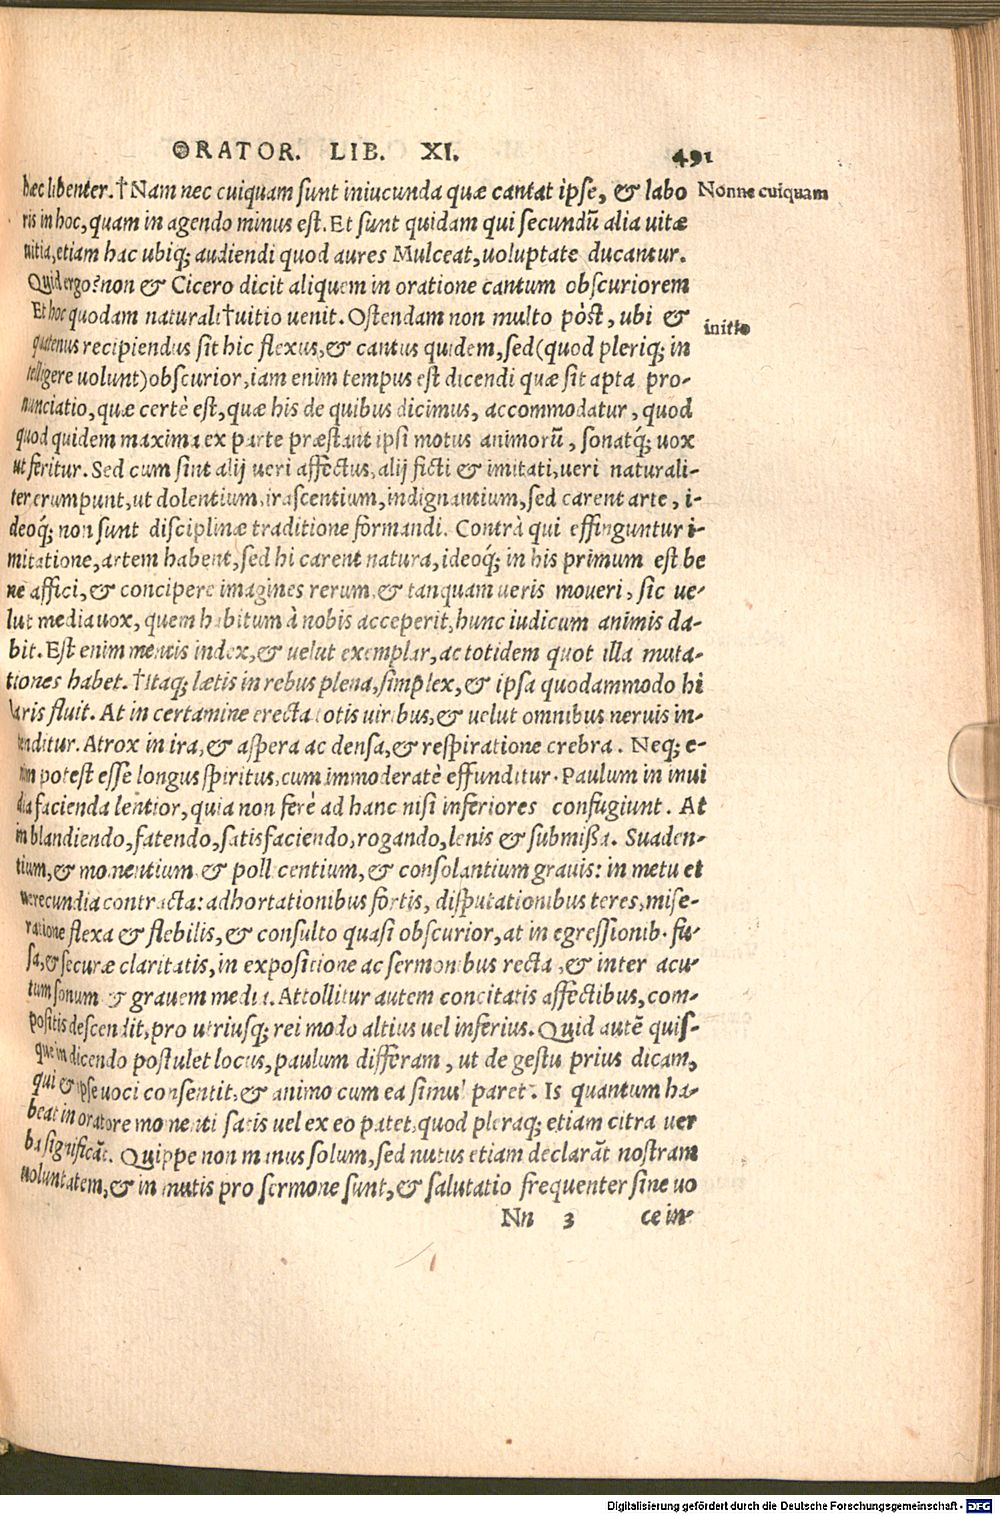 ORATOR. LIB. XI. 491
hæc libenter. † Nam nec cuiquam sunt iniucunda quæ cantat ipse, & labo Nonne cuiquam
ris in hoc, quam in agendo minus est. Et sunt quidam qui secundū alia uitæ
uitia, etiam hac ubiq; audiendi quod aures Mulceat, uoluptate ducantur.
Quid ergo? non & Cicero dicit aliquem in oratione cantum obscuriorem
Et hoc quodam naturali † uitio uenit. Ostendam non multo pòst, ubi &
initio
quatenus recipiendus sit hic flexus, & cantus quidem, sed (quod pleriq; in
telligere uolunt) obscurior, iam enim tempus est dicendi quæ sit apta pro-
nunciatio, quæ certè est, quæ his de quibus dicimus, accommodatur, quod
quod quidem maxima ex parte præstant ipsi motus animorū, sonatq́; uox
ut feritur. Sed cum sint alij ueri affectus, alij ficti & imitati, ueri naturali-
ter erumpunt, ut dolentium, irascentium, indignantium, sed carent arte, i-
deoq́; non sunt disciplinæ traditione formandi. Contrà qui effinguntur i-
mitatione, artem habent, sed hi carent natura, ideoq́; in his primum est be
ne affici, & concipere imagines rerum, & tanquam ueris moueri, sic ue-
lut media uox, quem habitum à nobis acceperit, hunc iudicum animis da-
bit. Est enim mentis index, & uelut exemplar, ac totidem quot illa muta-
tiones habet. † Itaq; lætis in rebus plena, simplex, & ipsa quodammodo hi
laris fluit. At in certamine erecta totis uiribus, & uelut omnibus neruis in-
tenditur. Atrox in ira, & aspera ac densa, & respiratione crebra. Neq; e-
nim potest esse longus spiritus, cum immoderatè effunditur. Paulum in inui
dia facienda lentior, quia non ferè ad hanc nisi inferiores confugiunt. At
in blandiendo, fatendo, satisfaciendo, rogando, lenis & submißa. Suaden-
tium, & monentium & pollicentium, & consolantium grauis: in metu et
uerecundia contracta: adhortationibus fortis, disputationibus teres, mise-
ratione flexa & flebilis, & consulto quasi obscurior, at in egressionib. fu-
sa, & securæ claritatis, in expositione ac sermonibus recta, & inter acu-
tum sonum & grauem media. Attollitur autem concitatis affectibus, com-
positis descendit, pro utriusq; rei modo altius uel inferius. Quid autē quis-
que in dicendo postulet locus, paulum differam, ut de gestu prius dicam,
qui & ipse uoci consentit, & animo cum ea simul paret. Is quantum ha-
beat in oratore momenti satis uel ex eo patet, quod pleraq; etiam citra uer
ba significāt. Quippe non manus solum, sed nutus etiam declarāt nostram
uoluntatem, & in mutis pro sermone sunt, & salutatio frequenter sine uo
Nn 3 ce in-
Digitalisierung gefördert durch die Deutsche Forschungsgemeinschaft - DFG